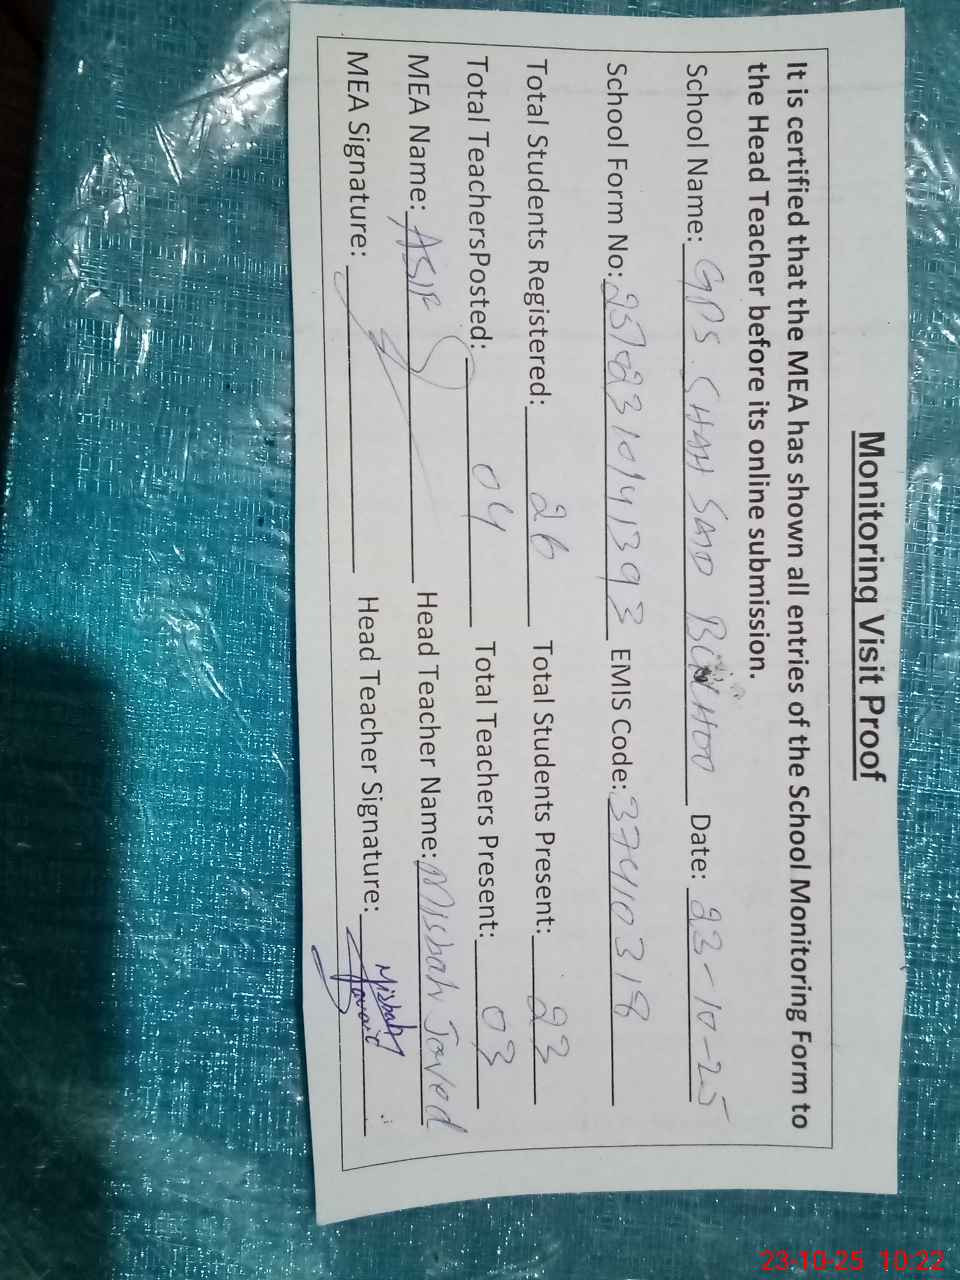 Monitoring Visit Proof
It is certified that the MEA has shown all entries of the School Monitoring Form to
the Head Teacher before its online submission.
School Name: GPS. CHAH SAID Date: 23-10-25
School Form No: 252310141393 EMIS Code: 37410318
Total Students Registered: 26 Total Students Present: 23
Total TeachersPosted: 04 Total Teachers Present: 03
MEA Name: ASIF Head Teacher Name: Misbah Javed
MEA Signature: Head Teacher Signature: Misbah Javaid
23-10-25 10:22